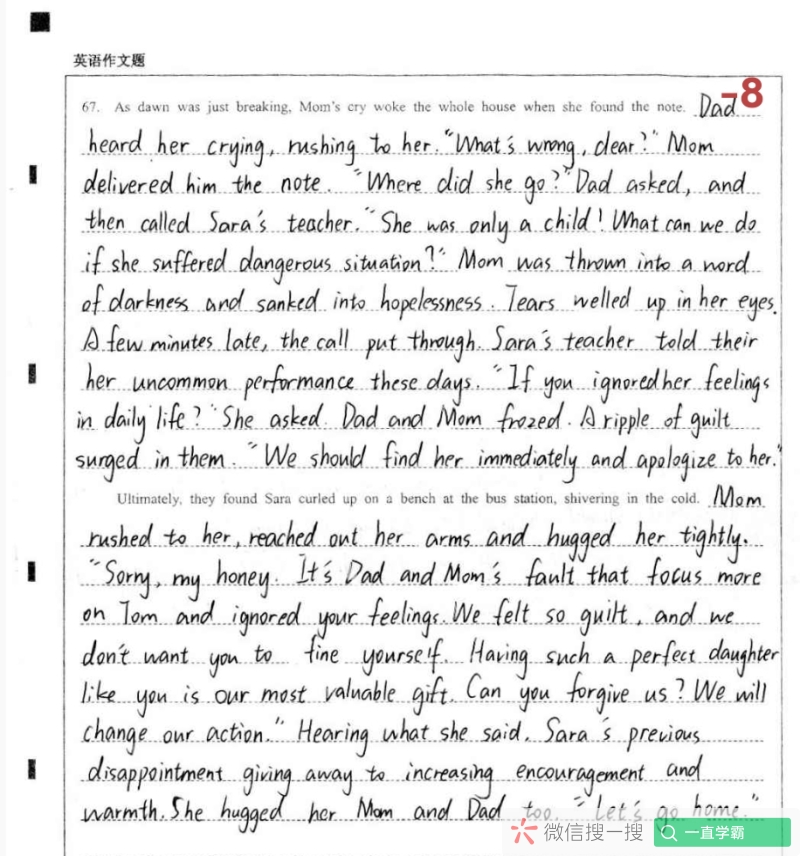 英语作文题
-8
67. As dawn was just breaking, Mom's cry woke the whole house when she found the note. Dad
heard her crying, rushing to her. "What's wrong, dear?" Mom
delivered him the note. "Where did she go?" Dad asked, and
then called Sara's teacher. "She was only a child! What can we do
if she suffered dangerous situation?" Mom was thrown into a word
of darkness and sanked into hopelessness. Tears welled up in her eyes.
A few minutes late, the call put through. Sara's teacher told their
her uncommon performance these days. "If you ignored her feelings
in daily life?" She asked. Dad and Mom frozed. A ripple of guilt
surged in them. "We should find her immediately and apologize to her."
Ultimately, they found Sara curled up on a bench at the bus station, shivering in the cold. Mom
rushed to her, reached out her arms and hugged her tightly.
"Sorry, my honey. It's Dad and Mom's fault that focus more
on Tom and ignored your feelings. We felt so guilt, and we
don't want you to fine yourself. Having such a perfect daughter
like you is our most valuable gift. Can you forgive us? We will
change our action." Hearing what she said, Sara's previous
disappointment giving away to increasing encouragement and
warmth. She hugged her Mom and Dad too. "Let's go home."
微信搜一搜 一直学霸